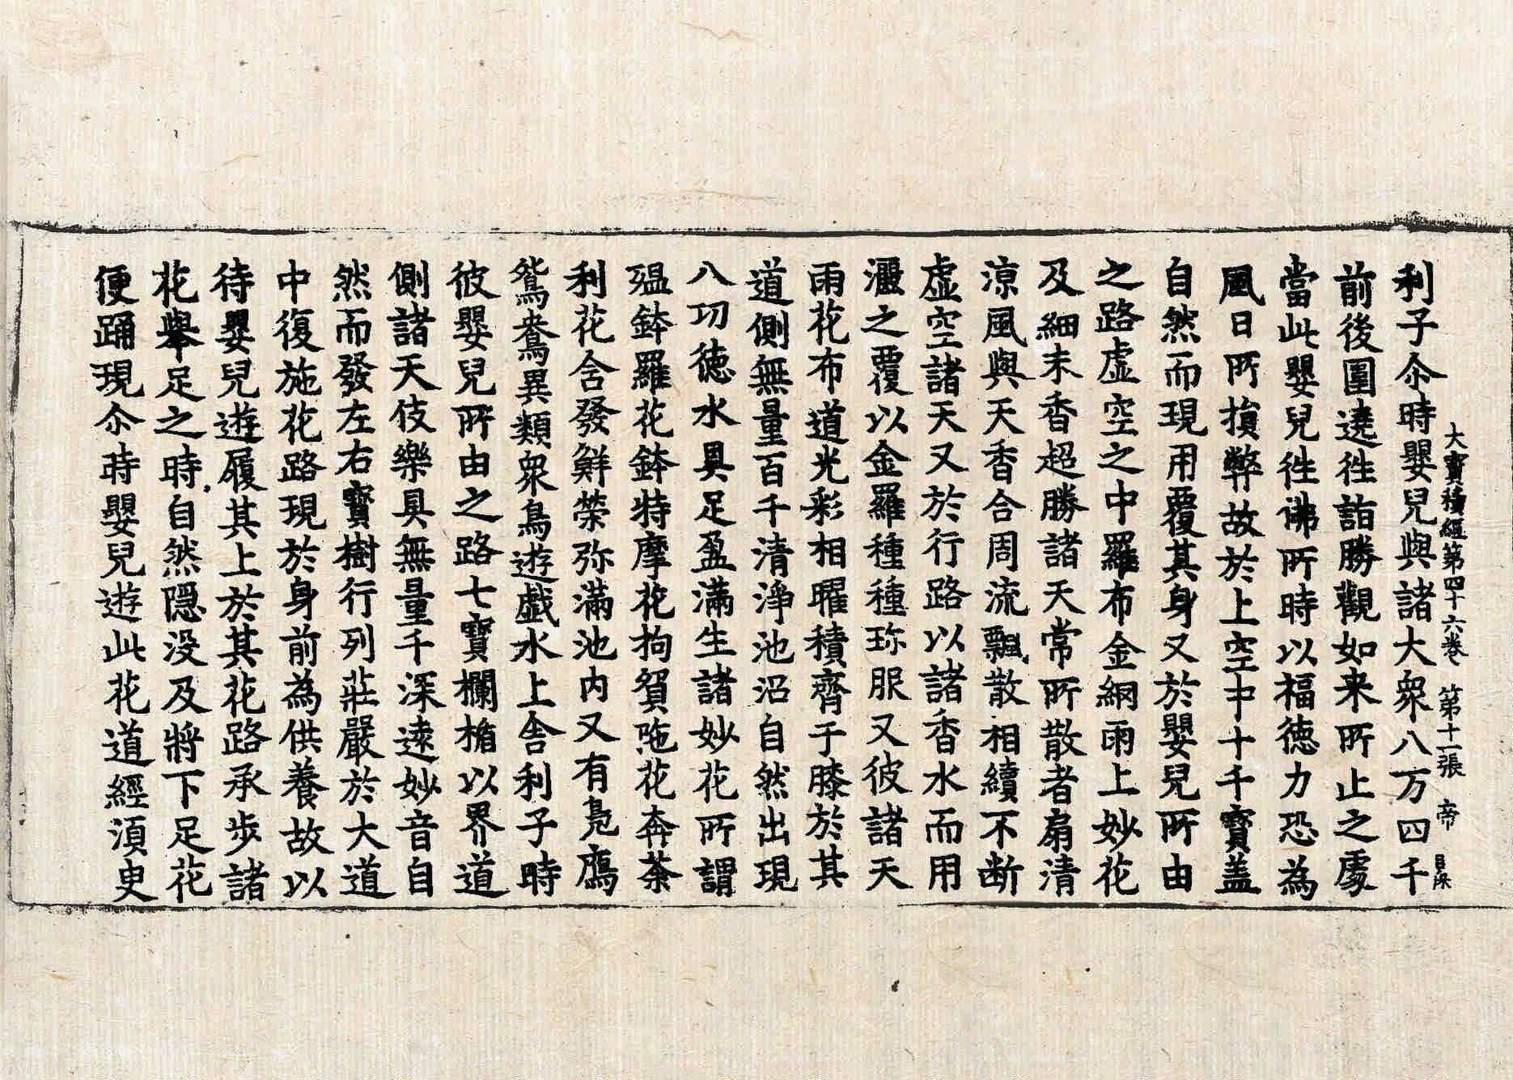 大寶積經第四十六卷 第十一張 帝
利子尒時嬰兒與諸大衆八万四千
前後圍遶徃詣勝觀如来所止之處
當此嬰兒徃佛所時以福德力恐為
風日所損弊故於上空中十千寶盖
自然而現用覆其身又於嬰兒所由
之路虛空之中羅布金網雨上妙花
及細末香超勝諸天常所散者扇清
涼風與天香合周流飄散相續不断
虛空諸天又於行路以諸香水而用
灑之覆以金羅種種珎服又彼諸天
雨花布道光彩相曜積齊于膝於其
道側無量百千清淨池沼自然出現
八功德水具足盈滿生諸妙花所謂
殟鉢羅花鉢特摩花拘貿陁花奔荼
利花含發鮮榮弥滿池内又有鳬鴈
鴛鴦異類衆鳥遊戲水上舍利子時
彼嬰兒所由之路七寶欄楯以界道
側諸天伎樂具無量千深逺妙音自
然而發左右寶樹行列莊嚴於大道
中復施花路現於身前為供養故以
待嬰兒遊履其上於其花路承步諸
花舉足之時自然隱没及將下足花
便踊現尒時嬰兒遊此花道經湏臾